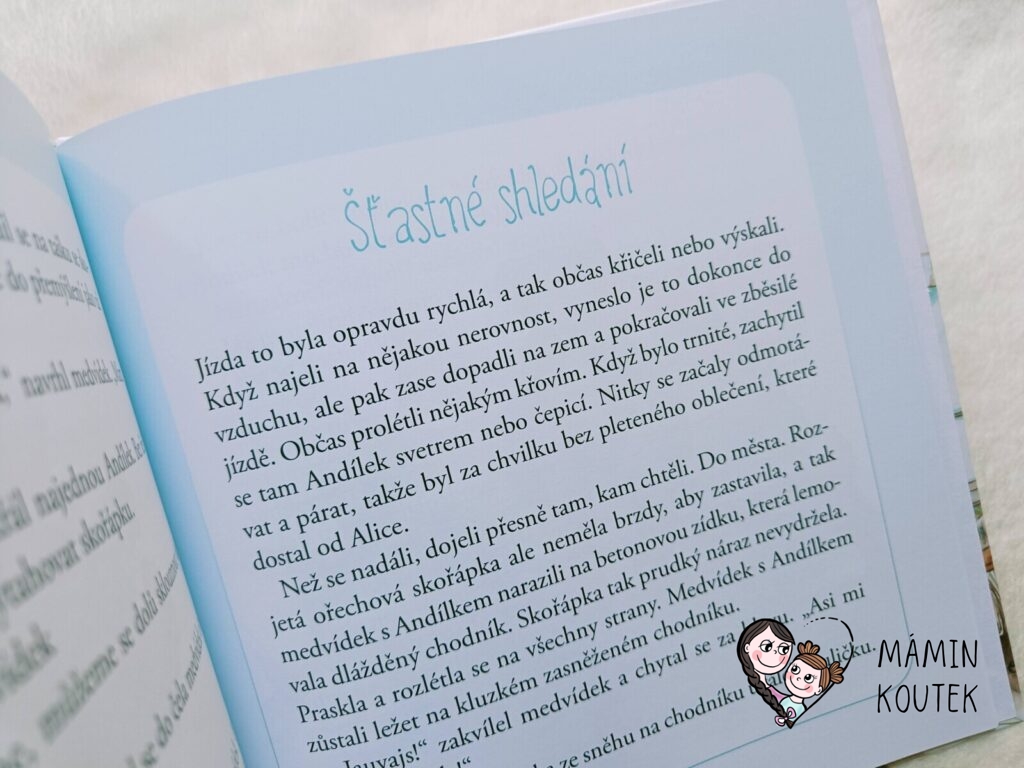 se na
do přemýšlení
navrhl medvídek
najednou Andílek
skořápku.
můžeme se dolů sklouznout
se do čela
Šťastné shledání
Jízda to byla opravdu rychlá, a tak občas křičeli nebo výskali.
Když najeli na nějakou nerovnost, vyneslo je to dokonce do
vzduchu, ale pak zase dopadli na zem a pokračovali ve zběsilé
jízdě. Občas prolétli nějakým křovím. Když bylo trnité, zachytil
se tam Andílek svetrem nebo čepicí. Nitky se začaly odmotá-
vat a párat, takže byl za chvilku bez pleteného oblečení, které
dostal od Alice.
Než se nadáli, dojeli přesně tam, kam chtěli. Do města. Roz-
jetá ořechová skořápka ale neměla brzdy, aby zastavila, a tak
medvídek s Andílkem narazili na betonovou zídku, která lemo-
vala dlážděný chodník. Skořápka tak prudký náraz nevydržela.
Praskla a rozlétla se na všechny strany. Medvídek s Andílkem
zůstali ležet na kluzkém zasněženém chodníku.
„Jauvajs!“ zakvílel medvídek a chytal se za „Asi mi
ze sněhu na chodníku
MÁMIN
KOUTEK